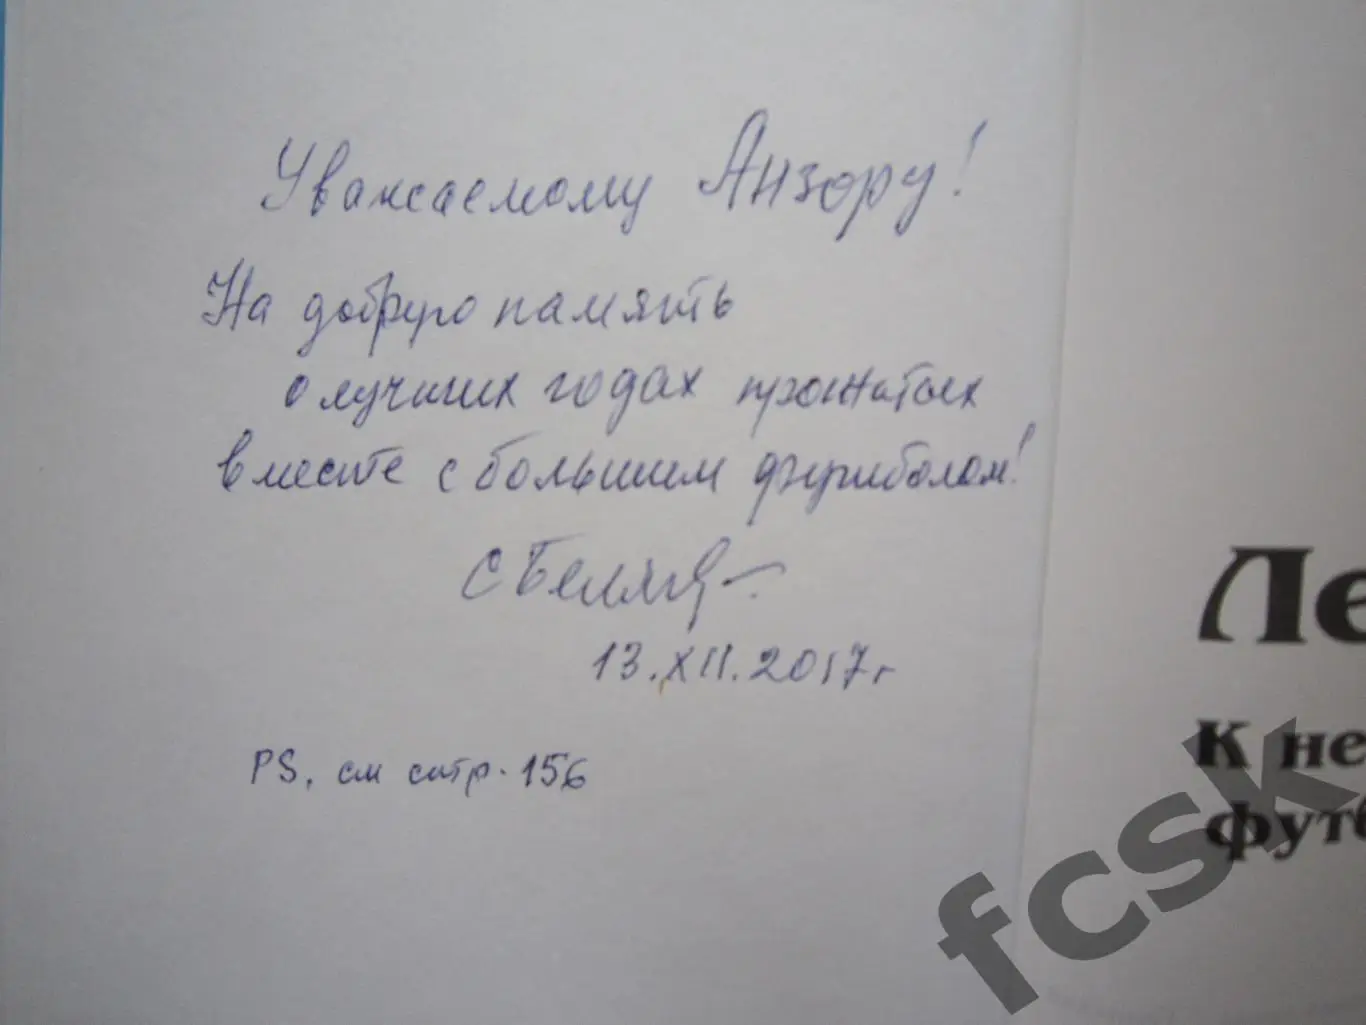 Уважаемому Анзору!
На добрую память
о лучших годах прожитых
вместе с большим футболом!
С Беляев
13.XII.2017г
PS. см стр. 156
Ле
К не
футб
fcsk